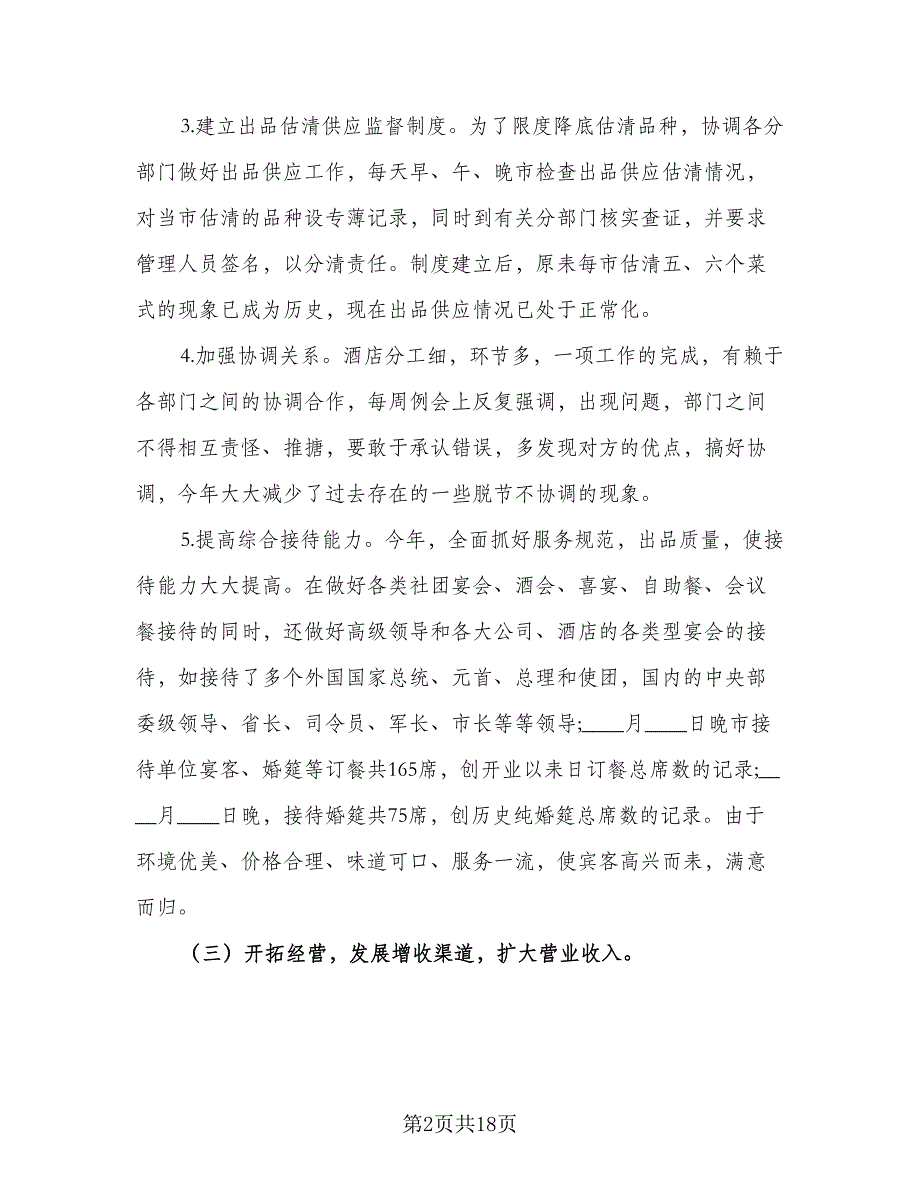 3.建立出品估清供应监督制度。为了限度降底估清品种，协调各分
部门做好出品供应工作，每天早、午、晚市检查出品供应估清情况，
对当市估清的品种设专薄记录，同时到有关分部门核实查证，并要求
管理人员签名，以分清责任。制度建立后，原来每市估清五、六个菜
式的现象已成为历史，现在出品供应情况已处于正常化。
4.加强协调关系。酒店分工细，环节多，一项工作的完成，有赖于
各部门之间的协调合作，每周例会上反复强调，出现问题，部门之间
不得相互责怪、推搪，要敢于承认错误，多发现对方的优点，搞好协
调，今年大大减少了过去存在的一些脱节不协调的现象。
5.提高综合接待能力。今年，全面抓好服务规范，出品质量，使接
待能力大大提高。在做好各类社团宴会、酒会、喜宴、自助餐、会议
餐接待的同时，还做好高级领导和各大公司、酒店的各类型宴会的接
待，如接待了多个外国国家总统、元首、总理和使团，国内的中央部
委级领导、省长、司令员、军长、市长等等领导;____月____日晚市接
待单位宴客、婚筵等订餐共165席，创开业以来日订餐总席数的记录;__
__月____日晚，接待婚筵共75席，创历史纯婚筵总席数的记录。由于
环境优美、价格合理、味道可口、服务一流，使宾客高兴而来，满意
而归。
（三）开拓经营，发展增收渠道，扩大营业收入。
第2页共18页